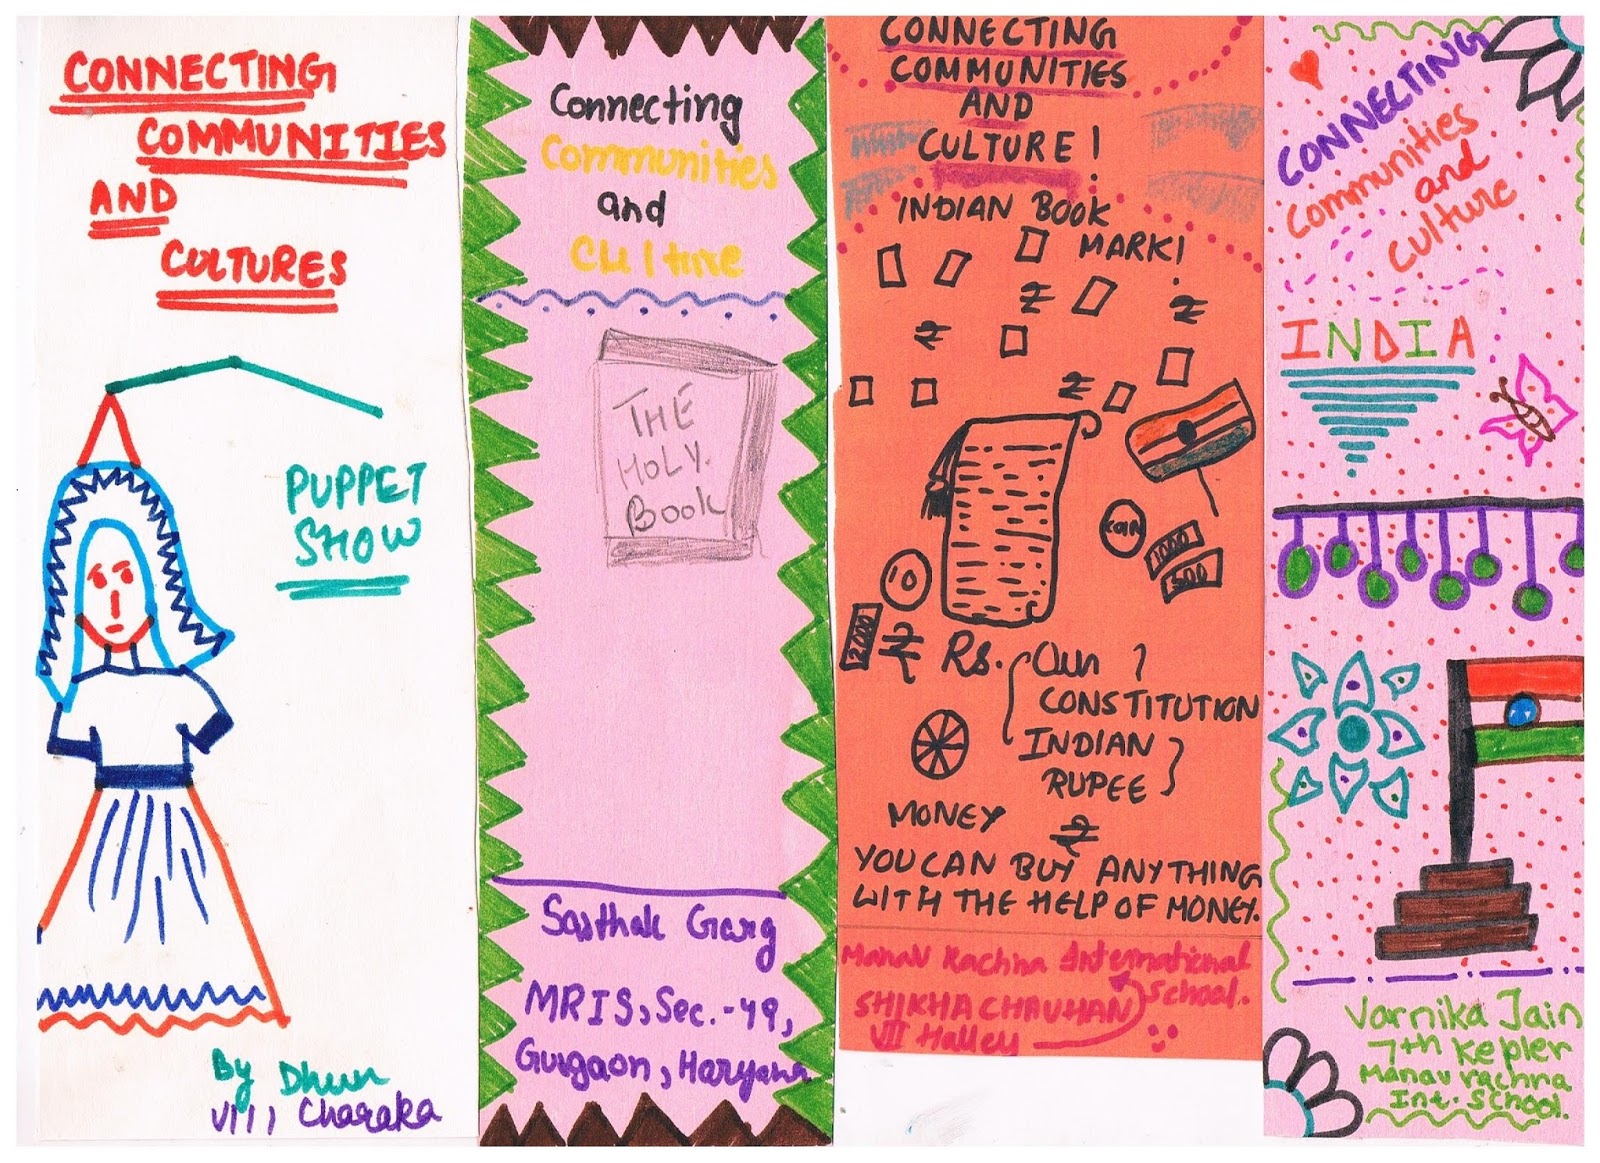 CONNECTING
COMMUNITIES
AND
CULTURES
PUPPET
SHOW
By Dhun
VIII, Charaka
Connecting
Communities
and
Culture
THE
HOLY.
BOOK
Sasthak Garg
MRIS, Sec.-49,
Gurgaon, Haryana
CONNECTING
COMMUNITIES
AND
CULTURE!
INDIAN BOOK
MARK!
₹ ₹
₹
₹
coin
1000
500
10
2000
₹ Rs.
Our
CONSTITUTION
INDIAN
RUPEE
MONEY ₹
YOU CAN BUY ANYTHING
WITH THE HELP OF MONEY.
Manav Rachna International
School.
SHIKHA CHAUHAN
VII Halley
CONNECTING
Communities
and
Culture
INDIA
Varnika Jain
7th Kepler
Manav rachna
Int. School.